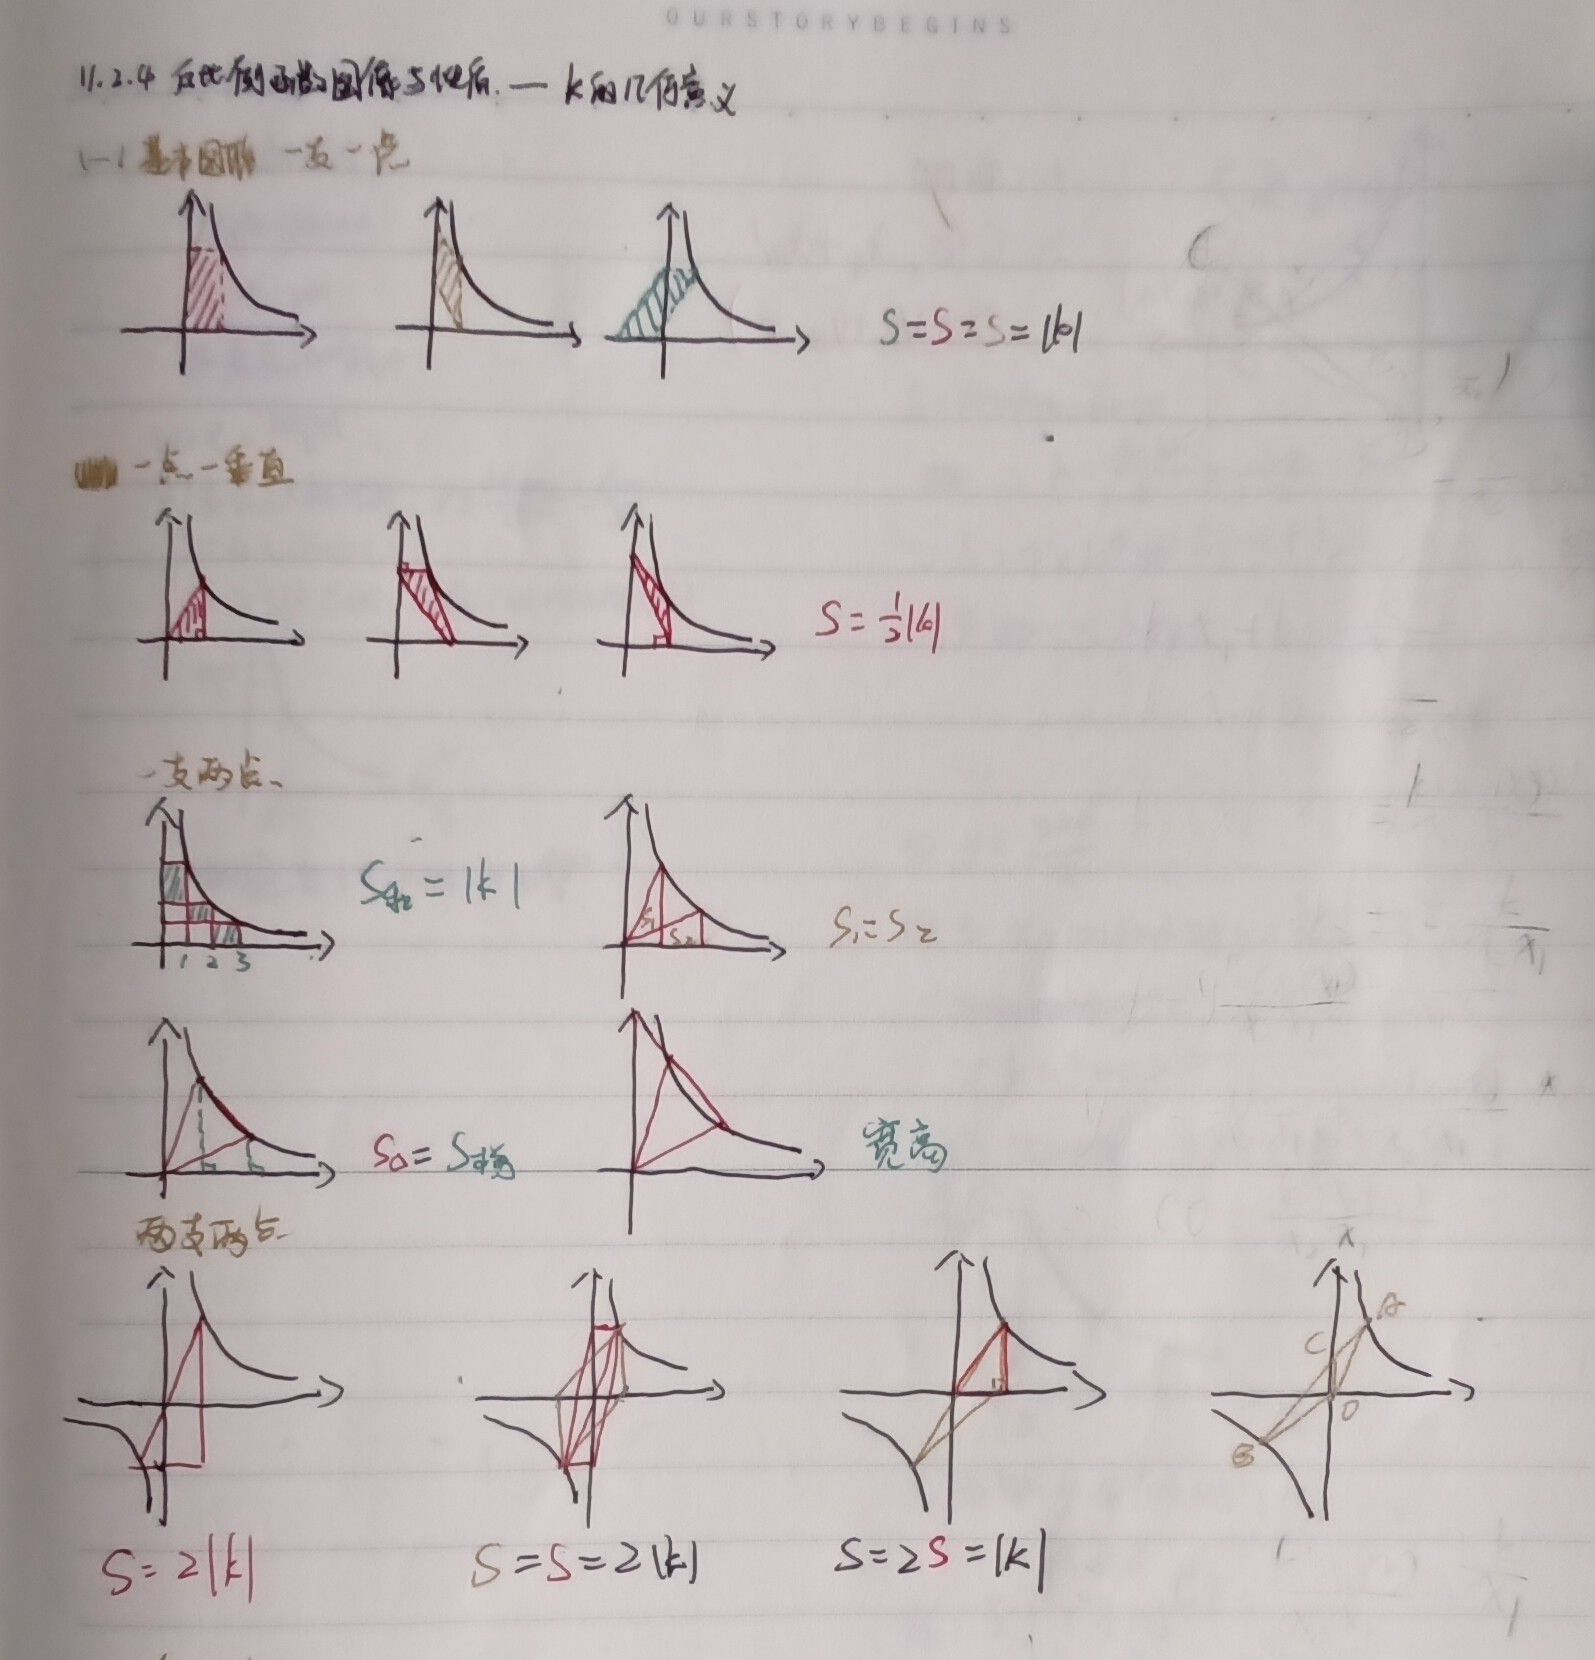 OURSTORYBEGINS
11.2.4 反比例函数图像与性质 — k的几何意义
(一) 基本图形 一支一点
S=S=S=|k|
一点一垂直
S=½|k|
一支两点、
S阴=|k|
1 2 3
S₁ S₂
S₁=S₂
S△=S梯
宽高
两支两点
A
C
O
B
S=2|k|
S=S=2|k|
S=2S=|k|